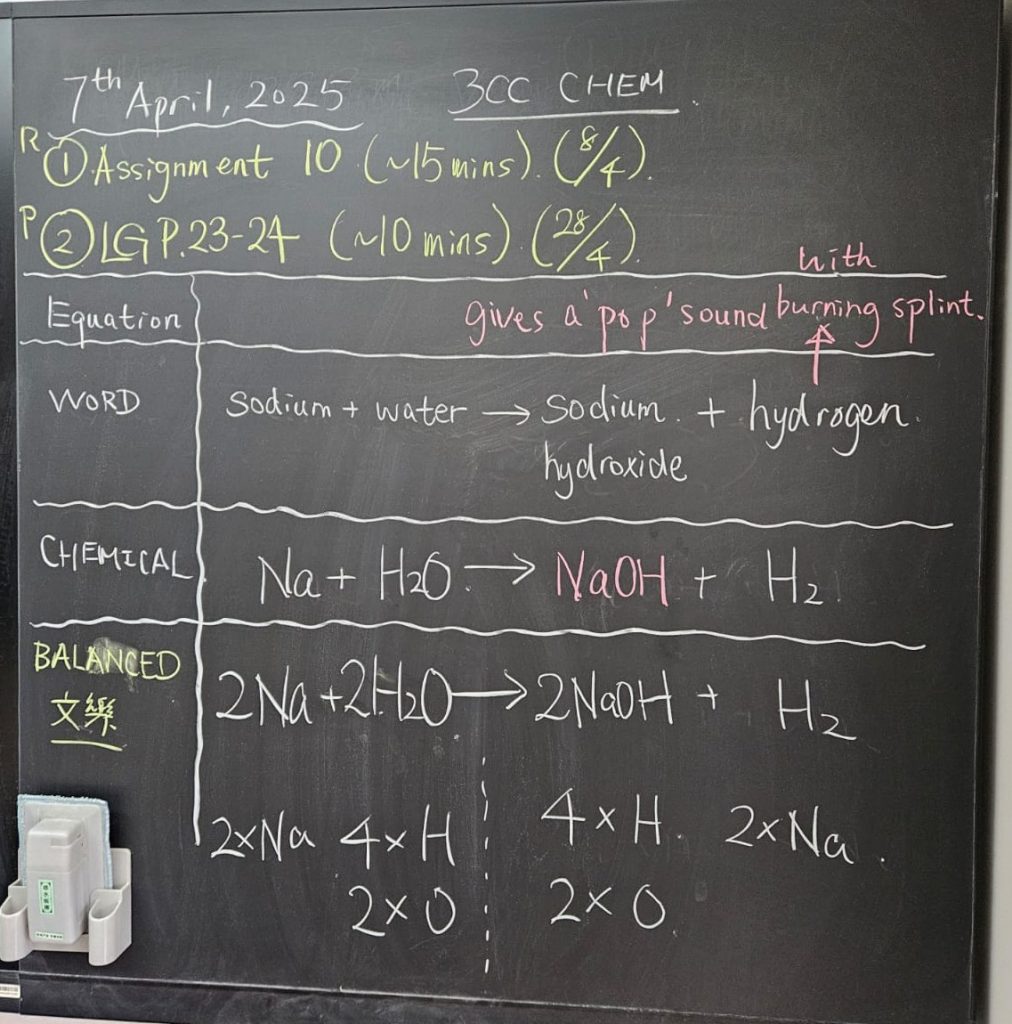 7th April, 2025 3CC CHEM
R ① Assignment 10 (~15 mins). (8/4).
P ② LG P.23-24 (~10 mins). (28/4).
with
Equation gives a 'pop' sound burning splint.
WORD sodium + water → sodium + hydrogen
hydroxide
CHEMICAL Na + H2O → NaOH + H2
BALANCED 2Na + 2H2O → 2NaOH + H2
文樂
2×Na 4×H 4×H 2×Na
2×O 2×O